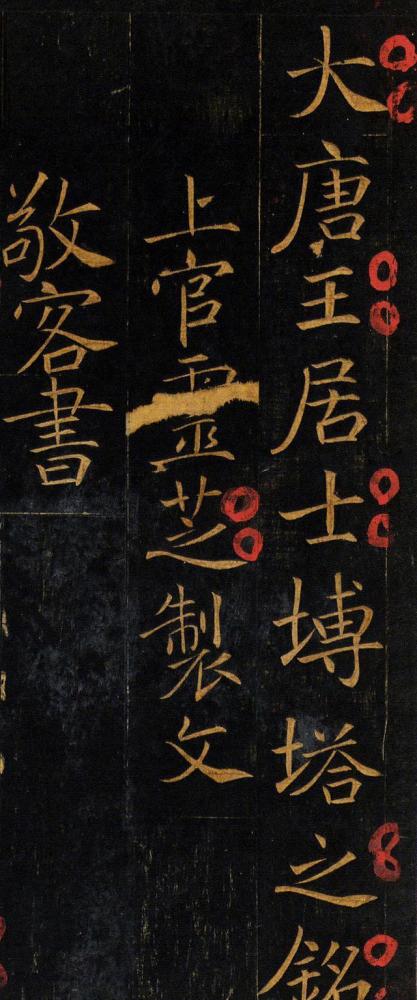 大唐王居士塼塔之銘
上官靈芝製文
敬客書